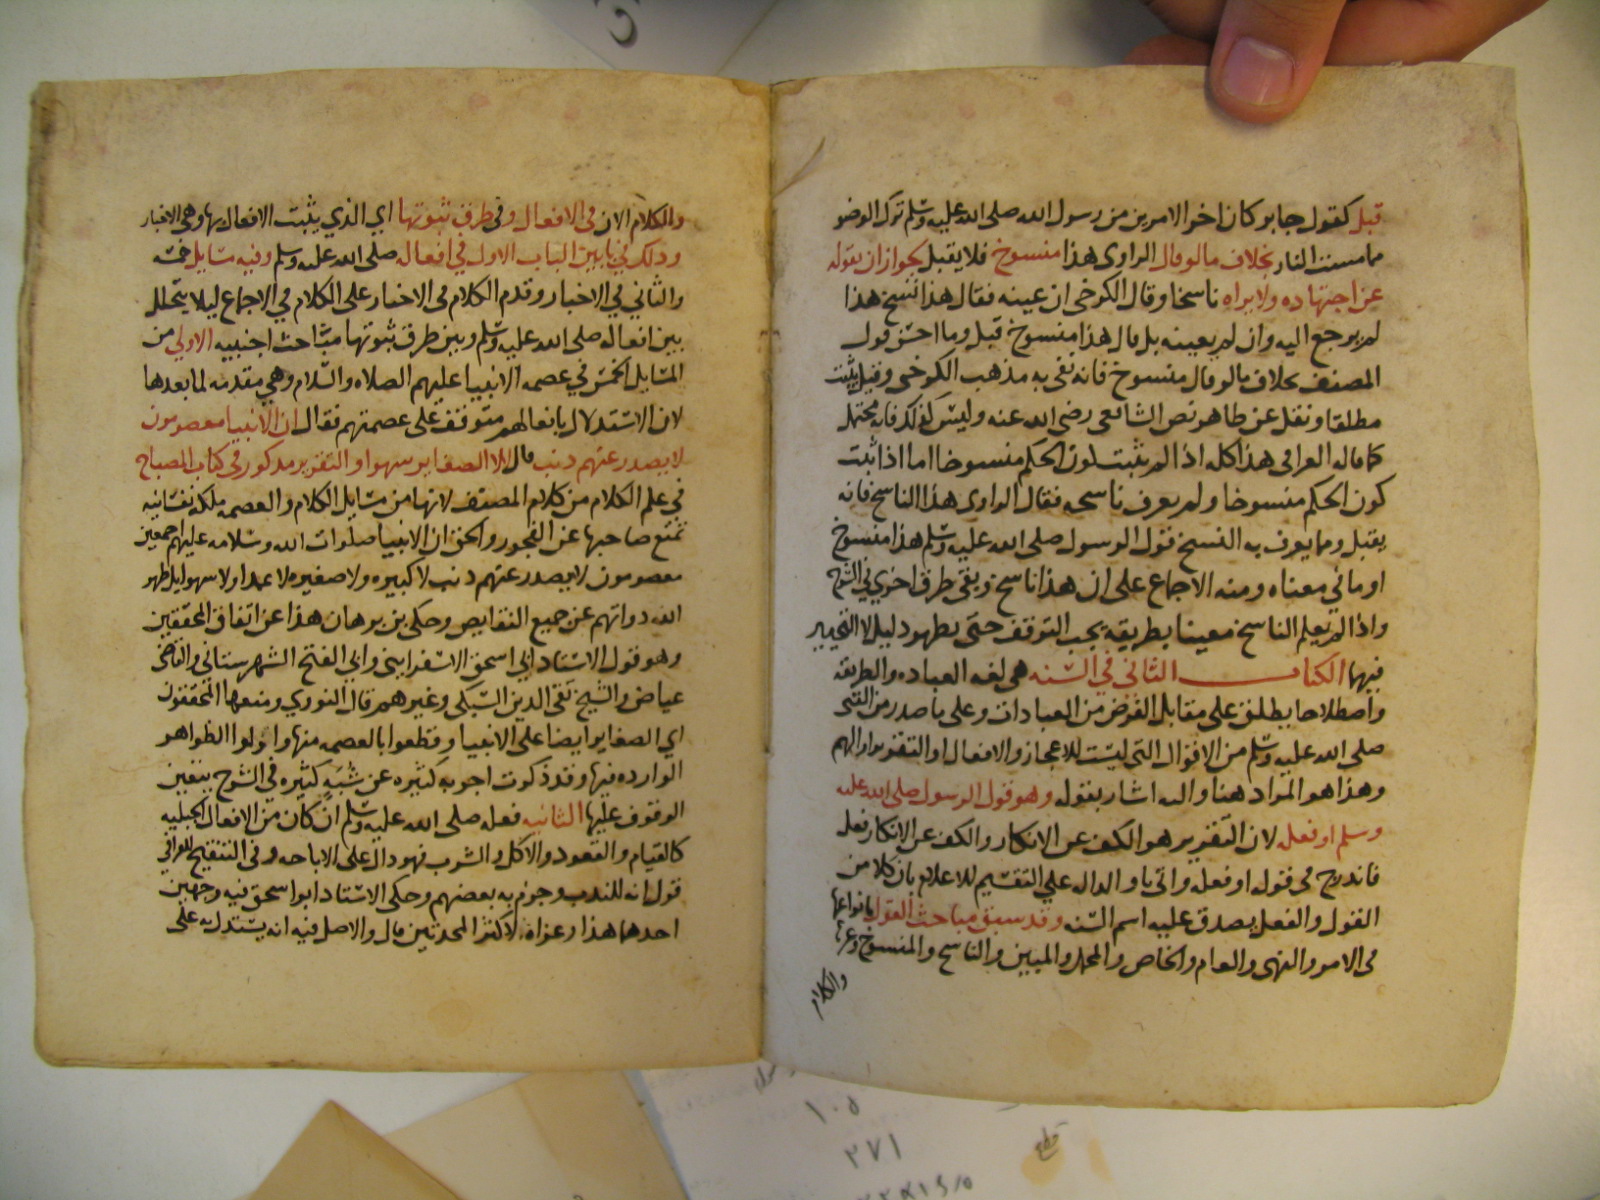 قبل كقول جابر كان اخر الامرين من رسول الله صلى الله عليه وسلم ترك الوضو
مما مست النار بخلاف ما لو قال الراوى هذا منسوخ فلا يقبل لجواز ان يقوله
عن اجتهاده ولا يراه ناسخا وقال الكرخى ان عينه فقال هذا نسخ هذا
لم يرجع اليه وان لم يعينه بل قال هذا منسوخ قبل وما احسن قول
المصنف بخلاف ما لو قال منسوخ فانه نفى به مذهب الكرخى وقيل يثبت
مطلقا ونقل عن ظاهر نص الشافعى رضى الله عنه وليس كذلك فانه محتمل
كما قاله العراقى هذا كله اذا لم يثبت كون الحكم منسوخا اما اذا ثبت
كون الحكم منسوخا ولم يعرف ناسخه فقال الراوى هذا الناسخ فانه
يقبل ومما يعرف به النسخ قول الرسول صلى الله عليه وسلم هذا منسوخ
او ما فى معناه ومنه الاجماع على ان هذا ناسخ وبقى طرق اخرى فى الشرح
واذا لم يعلم الناسخ معينا بطريقه يجب التوقف حتى يظهر دليل لا التخيير
فيها الكتاب الثانى فى السنه هى لغه العباده والطريقه
واصطلاحا يطلق على مقابل الفرض من العبادات وعلى ما صدر من النبى
صلى الله عليه وسلم من الاقوال التى ليست للاعجاز والافعال او التقرير
وهذا هو المراد هنا واليه اشار بقوله وهو قول الرسول صلى الله عليه
وسلم او فعله لان التقرير هو الكف عن الانكار والكف عن الانكار فعل
فاندرج فى قوله او فعله واتى باو الدال على التقسيم للاعلام بان كلا من
القول والفعل يصدق عليه اسم السنه وقد سبق مباحث القول بانواعها
فى الامر والنهى والعام والخاص والمجمل والمبين والناسخ والمنسوخ وغيرها
والكلام
والكلام الان فى الافعال وفى طرق ثبوتها اى الذي يثبت الافعال بها وهى الاخبار
وذلك فى بابين الباب الاول فى افعاله صلى الله عليه وسلم وفيه مسايل خمسه
والثاني في الاخبار وقدم الكلام فى الاخبار على الكلام في الاجماع ليلا يتخلل
بين افعاله صلى الله عليه وسلم وبين طرق ثبوتها مباحث اجنبيه الاولي من
المسايل الخمس في عصمه الانبيا عليهم الصلاه والسلام وهي مقدمه لما بعدها
لان الاستدلال بافعالهم متوقف على عصمتهم فقال ان الانبيا معصومون
لا يصدر عنهم ذنب قال الا الصغاير سهوا والتقرير مذكور فى كتاب المصباح
في علم الكلام من كلام المصنف لانها من مسايل الكلام والعصمه ملكه نفسانيه
تمنع صاحبها عن الفجور والحق ان الانبيا صلوات الله وسلامه عليهم اجمعين
معصومون لا يصدر عنهم ذنب لا كبيره ولا صغيره لا عمدا ولا سهوا بل طهر
الله ذواتهم عن جميع النقايص وحكى بن برهان هذا عن اتفاق المحققين
وهو قول الاستاد ابى اسحق الاسفراينى وابى الفتح الشهرستانى والقاضى
عياض والشيخ تقى الدين السبكى وغيرهم قال النووي ومنعها المحققون
اي الصغاير ايضا على الانبيا وقطعوا بالعصمه منها واولوا الظواهر
الوارده فيها وقد ذكرت اجوبه كثيره عن شبه كثيره فى الشرح يتعين
الوقوف عليها الثانيه فعله صلى الله عليه وسلم ان كان من الافعال الجبليه
كالقيام والقعود والاكل والشرب فهو دال على الاباحه وفى التنقيح للقرافى
قول انه للندب وجزم به بعضهم وحكى الاستاد ابوا سحق فيه وجهين
احدهما هذا وعزاه لاكثر المحدثين قال والاصل فيه انه يستدل به على
١٠٥
٢٧١